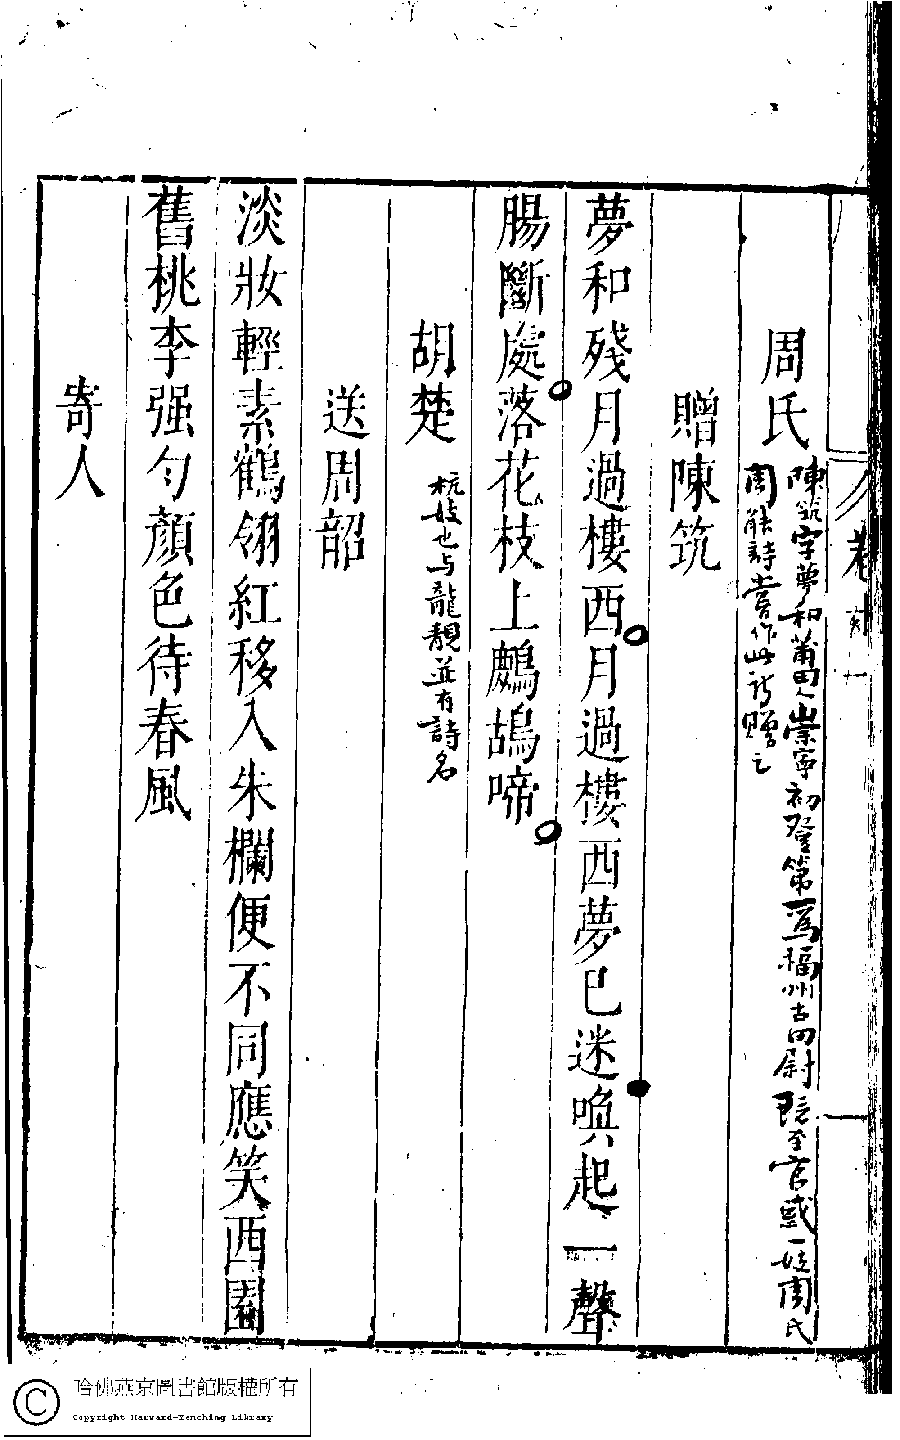 周氏
陳筑字夢和莆田人崇寧初登第一爲福州古田尉既至官惑一妓周氏
周能詩嘗作此詩贈之
贈陳筑
夢和殘月過樓西月過樓西夢已迷喚起一聲
腸斷處落花枝上鷓鴣啼
胡楚
杭妓也与龍靚並有詩名
送周韶
淡妝輕素鶴翎紅移入朱欄便不同應笑西園
舊桃李强勻顏色待春風
寄人
哈佛燕京圖書館版權所有
Copyright Harvard-Yenching Library